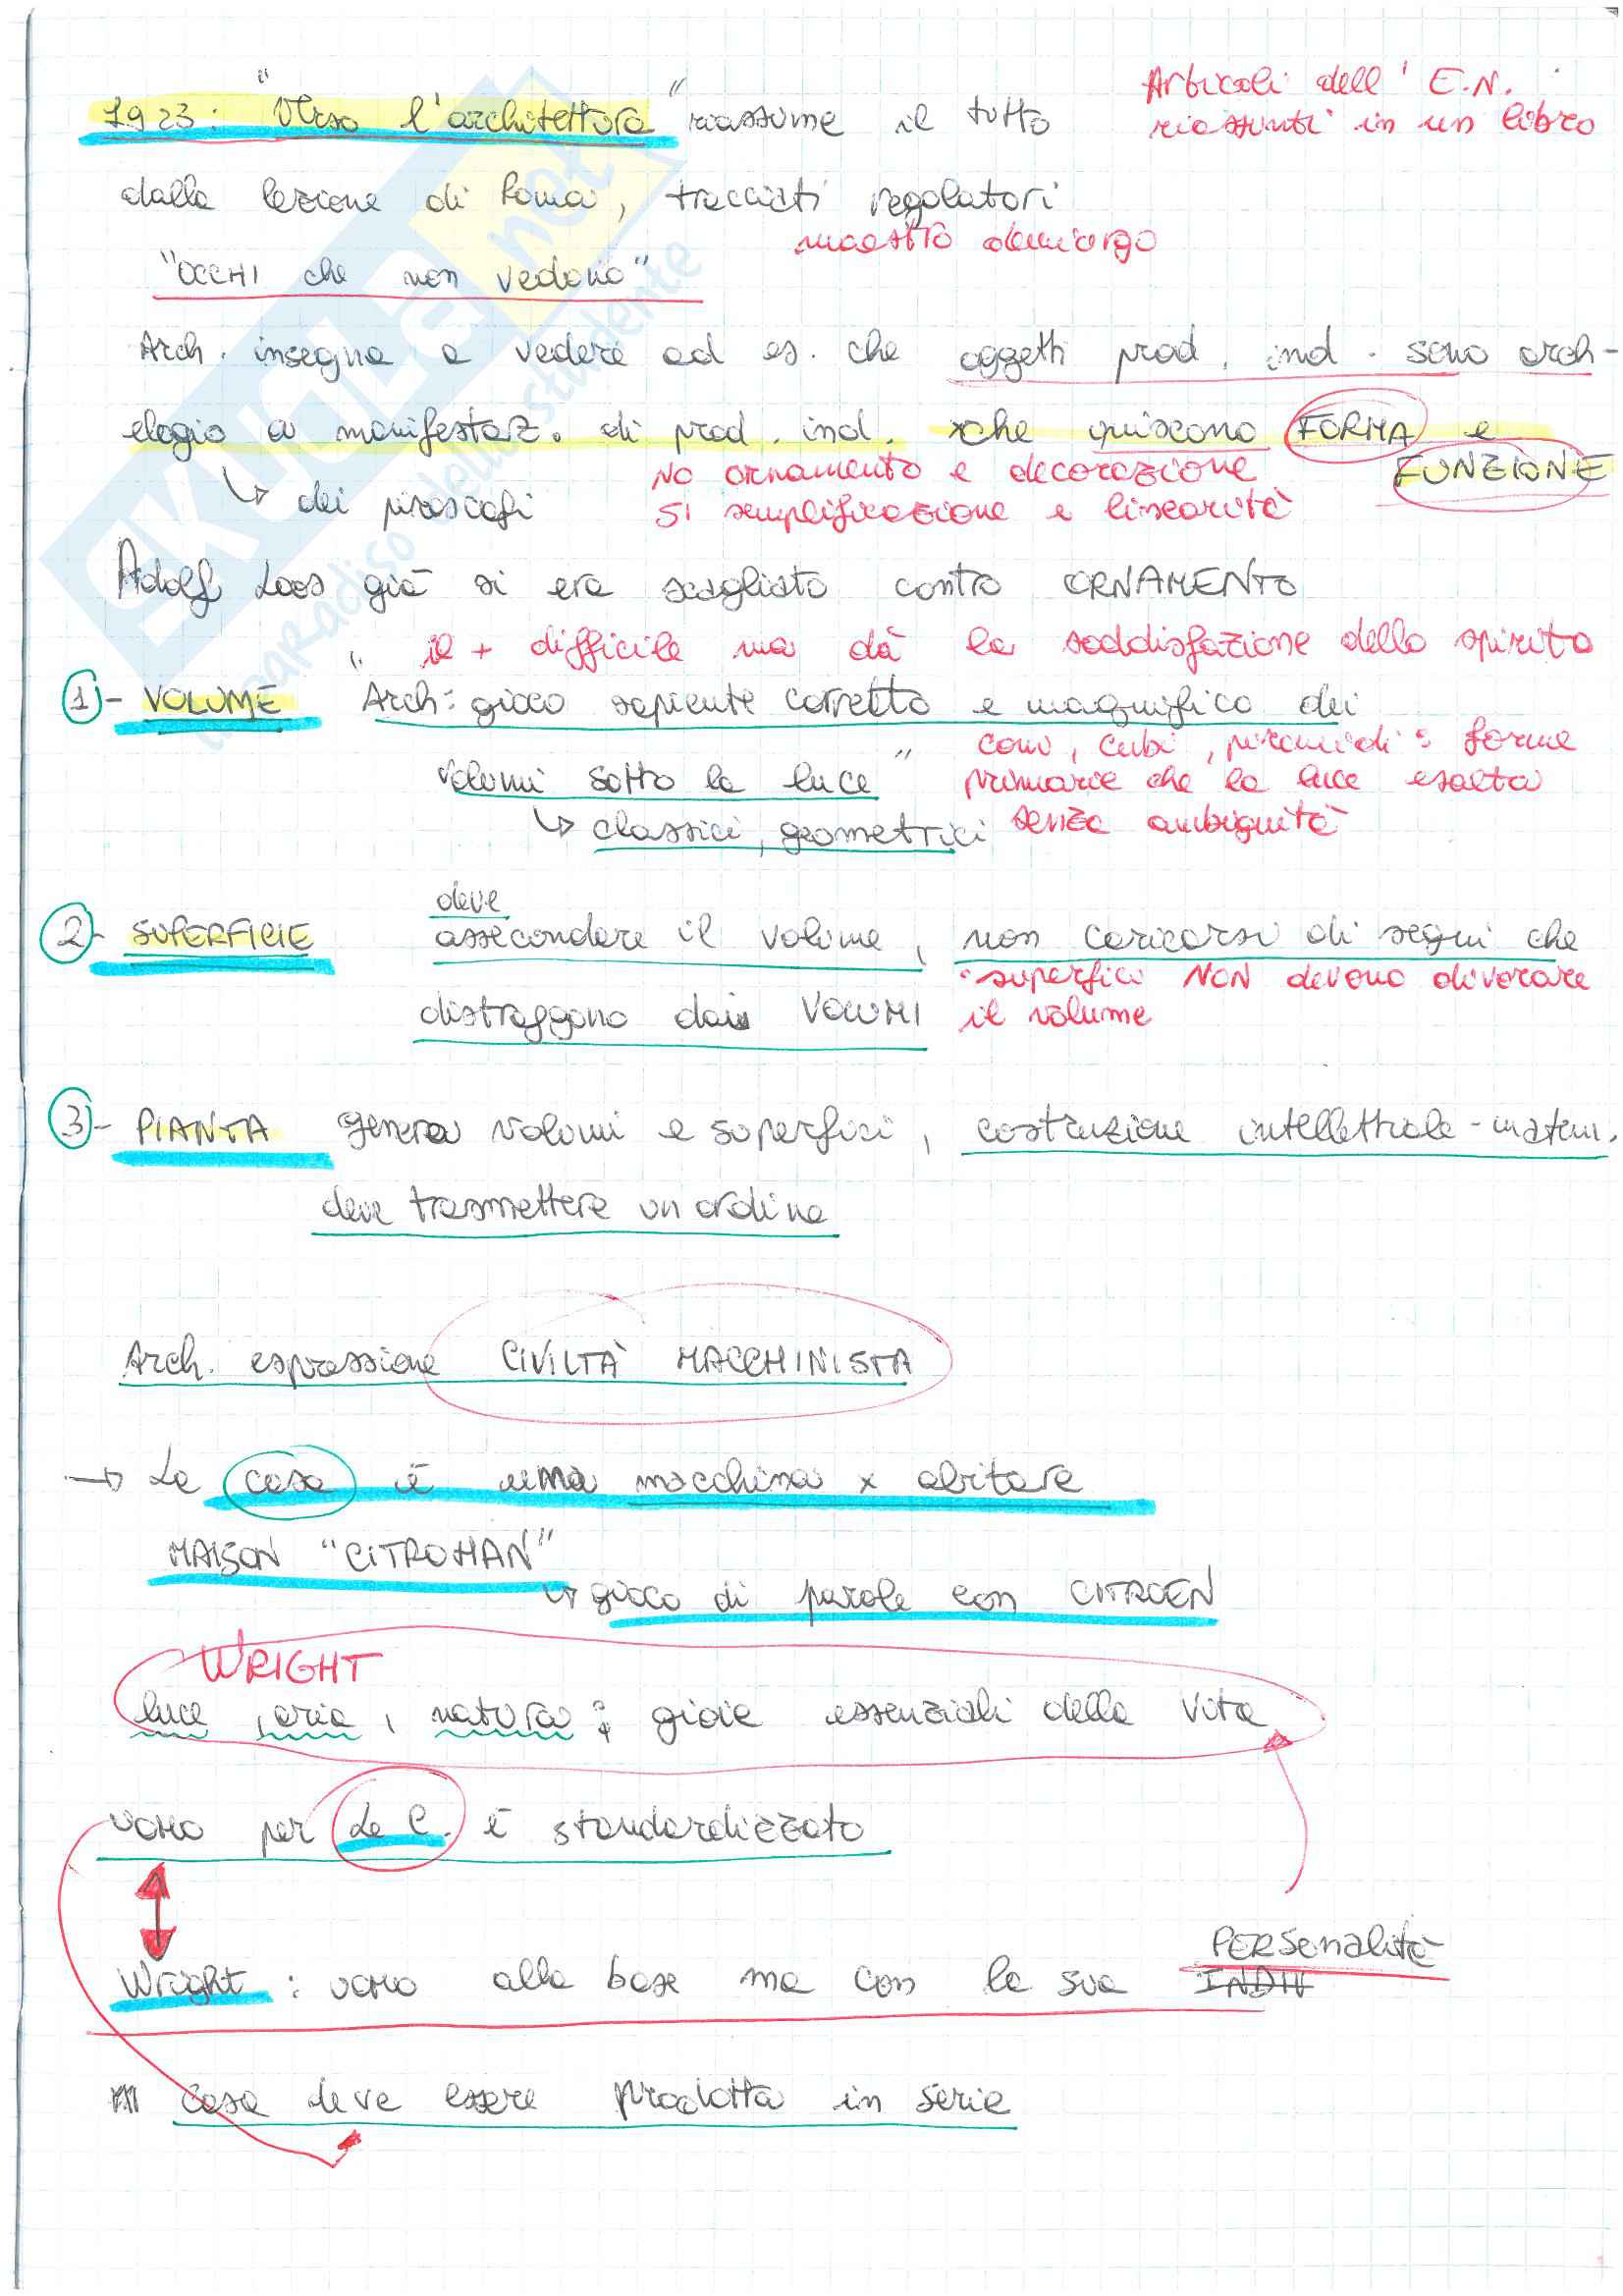 Articoli dell' E.N.
1923: "Verso l'architettura" riassume il tutto
riassunti in un libro
dalla lezione di Roma, tracciati regolatori
maestro demiurgo
"OCCHI che non vedono"
Arch. insegna a vedere ad es. che oggetti prod. ind. sono arch-
elogio a manifestaz. di prod. ind. xchè uniscono FORMA e
FUNZIONE
NO ornamento e decorazione
↳ dei piroscafi
SI semplificazione e linearità
Adolf Loos già si era scagliato contro ORNAMENTO
il + difficile ma dà la soddisfazione dello spirito
1- VOLUME "Arch: gioco sapiente corretto e magnifico dei
volumi sotto la luce"
coni, cubi, piramidi: forme
primarie che la luce esalta
senza ambiguità
↳ classici, geometrici
deve
2- SUPERFICIE assecondare il volume, non caricarsi di segni che
distraggono dai VOLUMI
superfici NON devono divorare
il volume
3- PIANTA genera volumi e superfici, costruzione intellettuale-matem.
deve trasmettere un ordine
Arch. espressione CIVILTÀ MACCHINISTA
→ La casa è una macchina x abitare
MAISON "CITROHAN"
↳ gioco di parole con CITROEN
WRIGHT
luce, aria, natura: gioie essenziali della vita
uomo per Le C. è standardizzato
PERSonalità
Wright: uomo alla base ma con la sua INDIV
casa deve essere prodotta in serie
SKUOLA.net
il paradiso dello studente